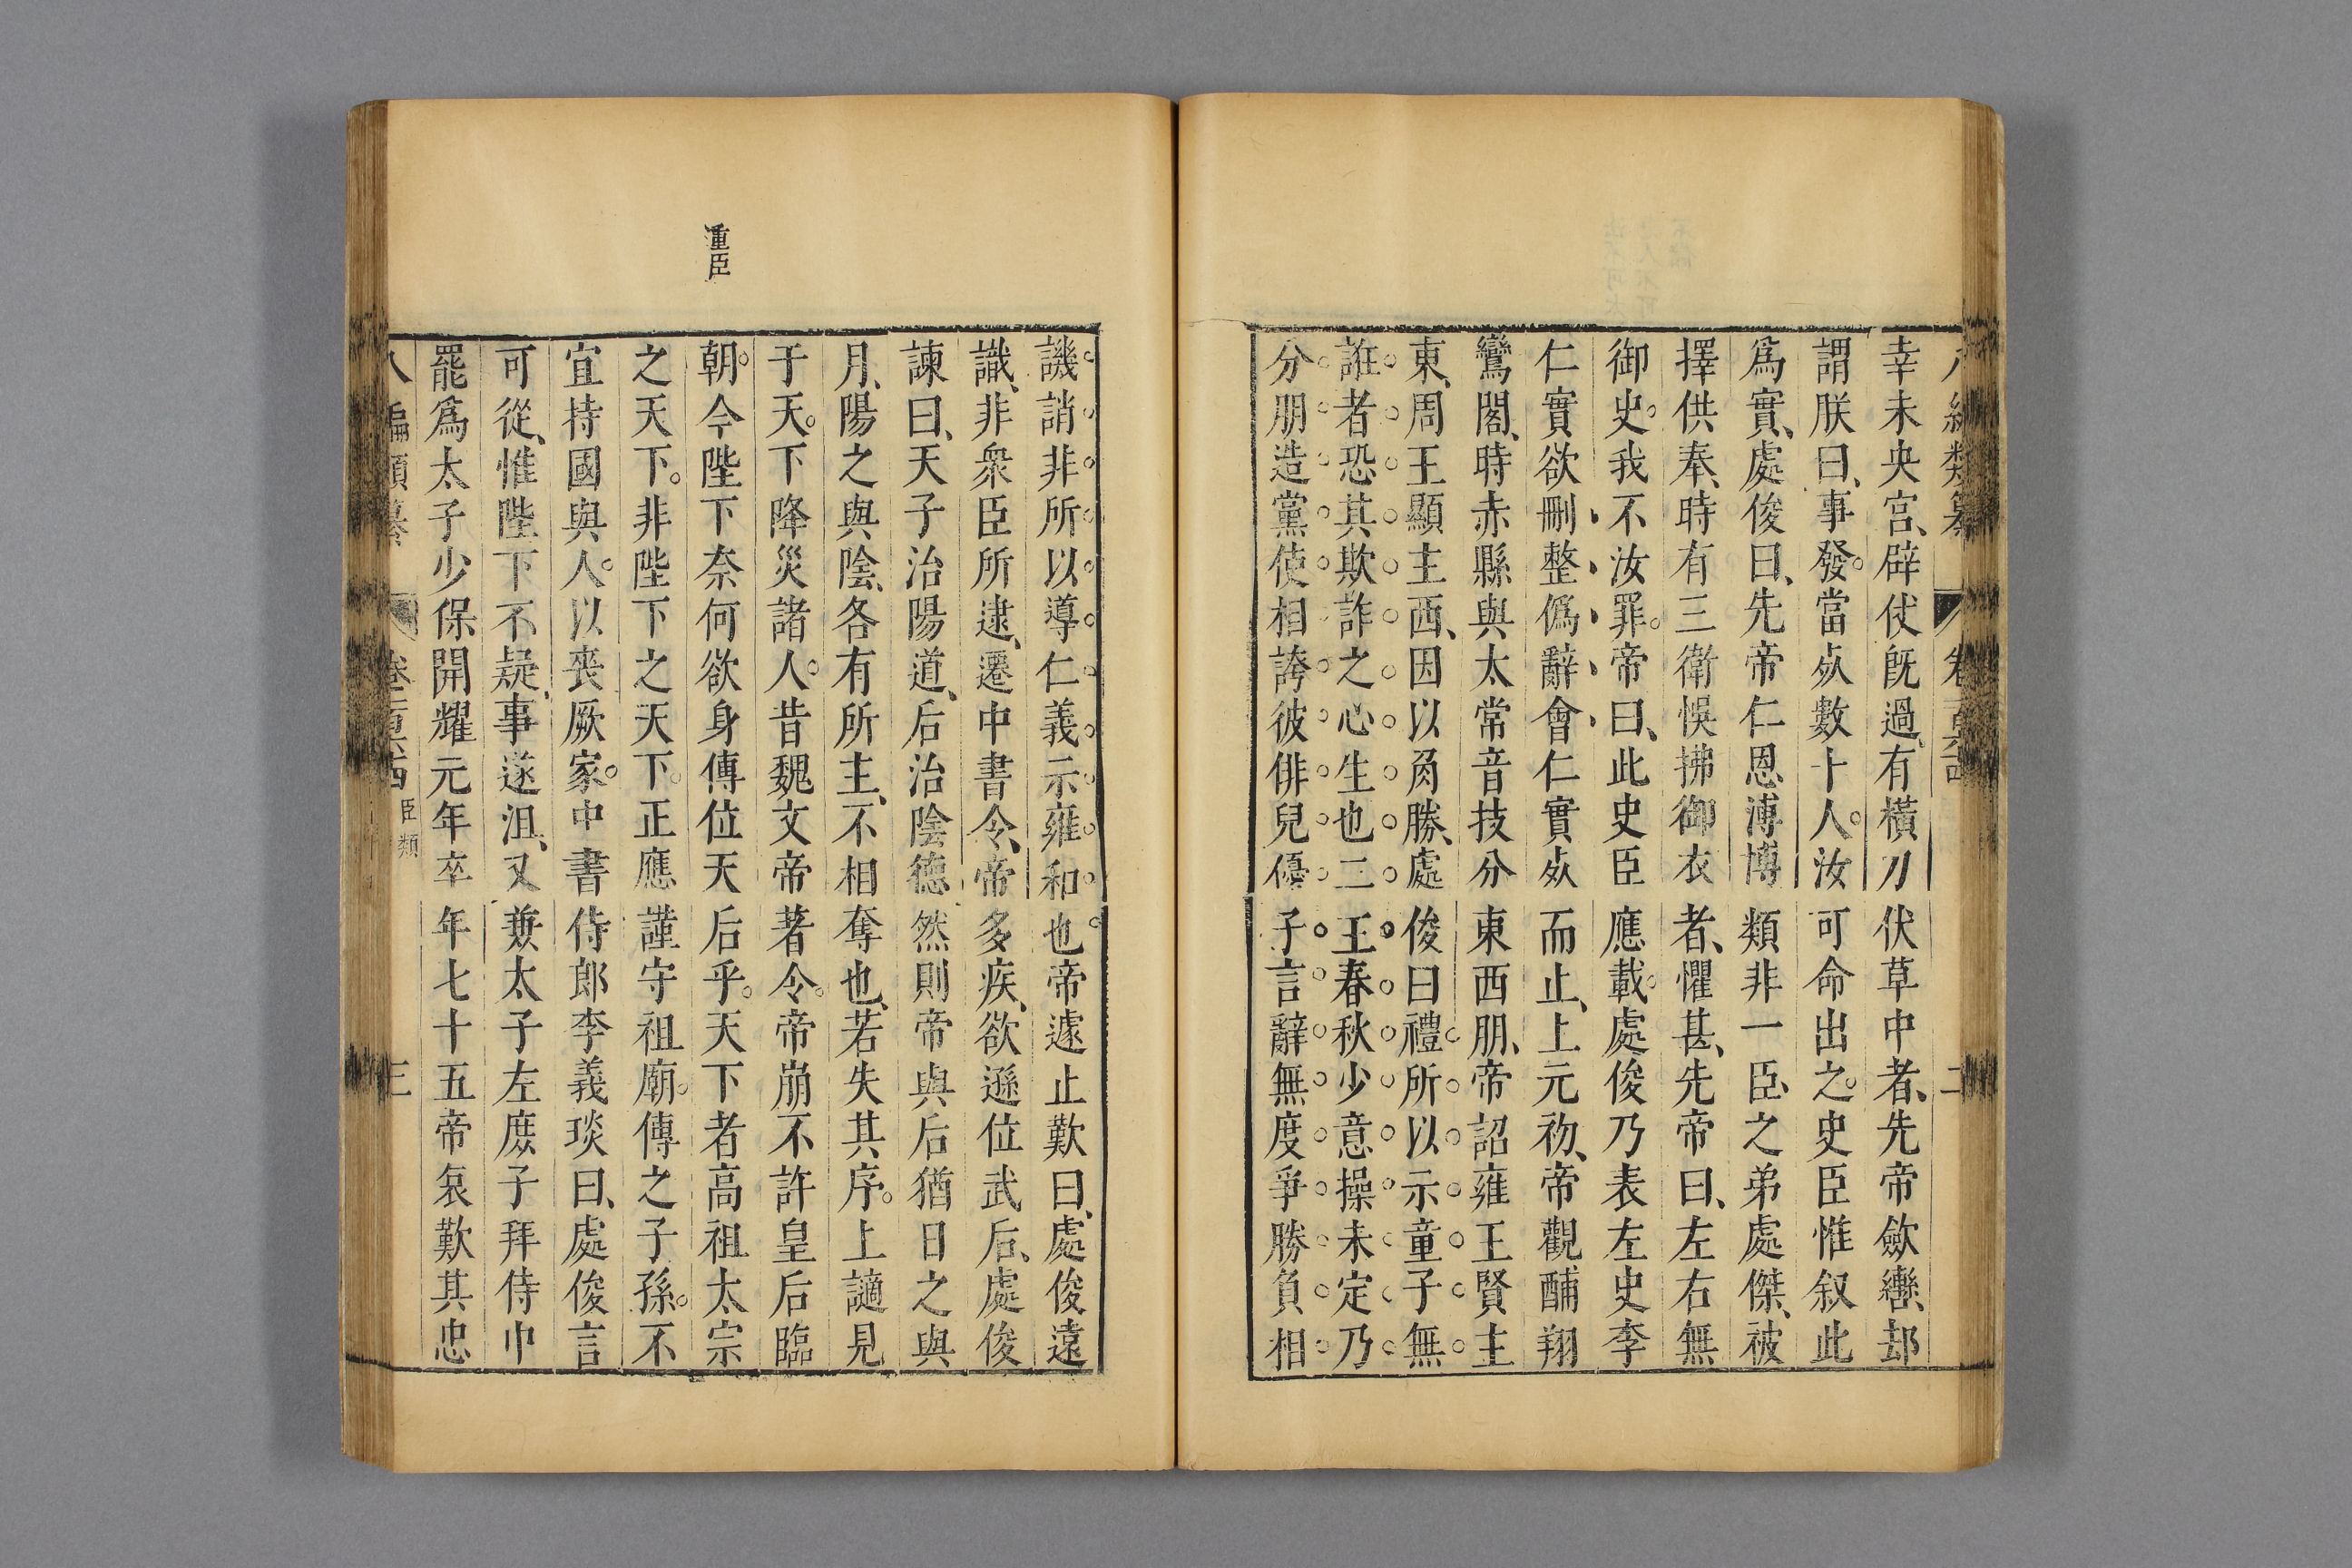 幸未央宫、辟仗既過、有横刀伏草中者、先帝歛轡、却
謂朕曰、事發。當㱕數十人。汝可命出之。史臣惟叙此
爲實、處俊曰、先帝仁恩溥博類非一臣、之弟處傑、被
擇供奉、時有三衛悞拂御衣者、懼甚、先帝曰、左右無
御史。我不汝罪。帝曰、此史臣應載。處俊乃表左史李
仁實欲刪整僞辭會仁實㱕而止、上元初、帝觀酺翔
鸞閣、時赤縣與太常音技分東西朋、帝詔雍王賢主
東、周王顯主西、因以角勝、處俊曰禮所以示童子無
誑者恐其欺詐之心生也二王春秋少意操未定乃
分朋造黨使相誇彼俳兒優子言辭無度爭勝負相
譏誚非所以導仁義示雍和也帝遽止歎曰、處俊遠
識、非衆臣所逮、遷中書令、帝多疾、欲遜位武后、處俊
諫曰、天子治陽道、后治陰德然則帝與后猶日之與
月、陽之與陰、各有所主、不相奪也、若失其序。上謫見
于天。下降災諸人。昔魏文帝著令。帝崩不許皇后臨
朝。今陛下奈何欲身傳位天后乎。天下者高祖太宗
之天下。非陛下之天下。正應謹守祖廟。傳之子孫。不
宜持國與人。以喪厥家。中書侍郎李義琰曰、處俊言
可從、惟陛下不疑、事遂沮、又兼太子左庶子拜侍中
罷爲太子少保開耀元年卒年七十五帝哀歎其忠
重臣
八編類纂 卷二百六十四 臣類 三